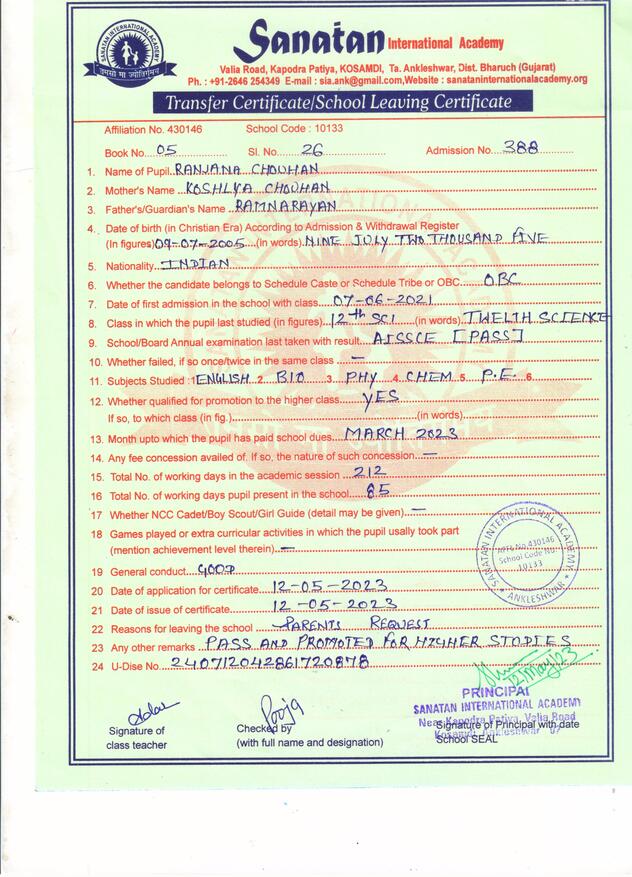 SANATAN INTERNATIONAL ACADEMY
तमसो मा ज्योतिर्गमय
Sanatan International Academy
Valia Road, Kapodra Patiya, KOSAMDI, Ta. Ankleshwar, Dist. Bharuch (Gujarat)
Ph. : +91-2646 254349 E-mail : sia.ank@gmail.com,Website : sanataninternationalacademy.org
Transfer Certificate/School Leaving Certificate
Affiliation No. 430146 School Code : 10133
Book No. 05 Sl. No. 26 Admission No. 388
1. Name of Pupil RANJANA CHOUHAN
2. Mother's Name KOSHLYA CHOUHAN
3. Father's/Guardian's Name RAMNARAYAN
4. Date of birth (in Christian Era) According to Admission & Withdrawal Register
(In figures) 09-07-2005 (in words) NINE JULY TWO THOUSAND FIVE
5. Nationality INDIAN
6. Whether the candidate belongs to Schedule Caste or Schedule Tribe or OBC OBC
7. Date of first admission in the school with class 07-06-2021
8. Class in which the pupil last studied (in figures) 12th SCI (in words) TWELTH SCIENCE
9. School/Board Annual examination last taken with result AISSCE [PASS]
10. Whether failed, if so once/twice in the same class —
11. Subjects Studied : 1 ENGLISH 2. BIO 3. PHY 4. CHEM 5. P.E. 6.
12. Whether qualified for promotion to the higher class YES
If so, to which class (in fig.) (in words)
13. Month upto which the pupil has paid school dues MARCH 2023
14. Any fee concession availed of. If so, the nature of such concession —
15. Total No. of working days in the academic session 212
16 Total No. of working days pupil present in the school 85
17 Whether NCC Cadet/Boy Scout/Girl Guide (detail may be given) —
18 Games played or extra curricular activities in which the pupil usally took part
(mention achievement level therein) —
19 General conduct GOOD
20 Date of application for certificate 12-05-2023
21 Date of issue of certificate 12-05-2023
22 Reasons for leaving the school PARENTS REQUEST
23 Any other remarks PASS AND PROMOTED FOR HIGHER STUDIES
24 U-Dise No. 240712042861720878
SANATAN INTERNATIONAL ACADEMY
Affi. No. 430146
School Code No.
10133
★ ANKLESHWAR ★
12/May/23
PRINCIPAL
SANATAN INTERNATIONAL ACADEMY
Near Kapodra Patiya, Valia Road
Kosamdi, Ankleshwar
Pooja
Signature of
class teacher
Checked by
(with full name and designation)
Signature of Principal with date
School SEAL